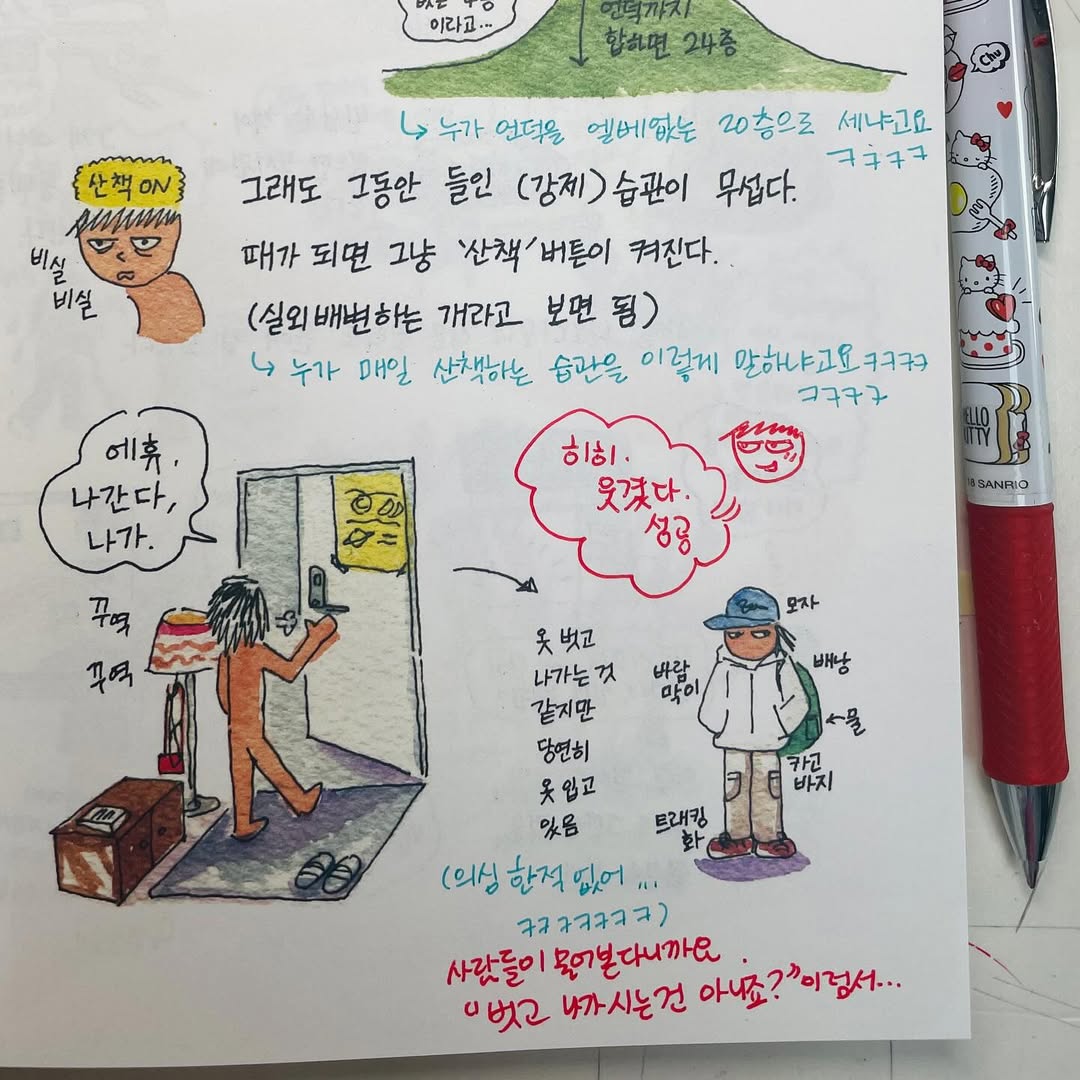 이라고...
언덕까지
합하면 24층
↳ 누가 언덕을 엘베없는 20층으로 세냐고요
ㅋㅋㅋㅋ
산책 ON
비실
비실
그래도 그동안 들인 (강제) 습관이 무섭다.
때가 되면 그냥 '산책' 버튼이 켜진다.
(실외배변하는 개라고 보면 됨)
↳ 누가 매일 산책하는 습관을 이렇게 말하냐고요ㅋㅋㅋㅋ
ㅋㅋㅋㅋ
에휴.
나간다,
나가.
꾸역
꾸역
히히.
웃겼다.
성공
옷 벗고
나가는 것
같지만
당연히
옷 입고
있음
모자
바람
막이
배낭
←물
카고
바지
트래킹
화
(의심 한적 없어...
ㅋㅋㅋㅋㅋㅋㅋ)
사람들이 물어본다니까요.
"벗고 나가시는건 아니죠?" 이럼서...
Chu
HELLO
KITTY
18 SANRIO